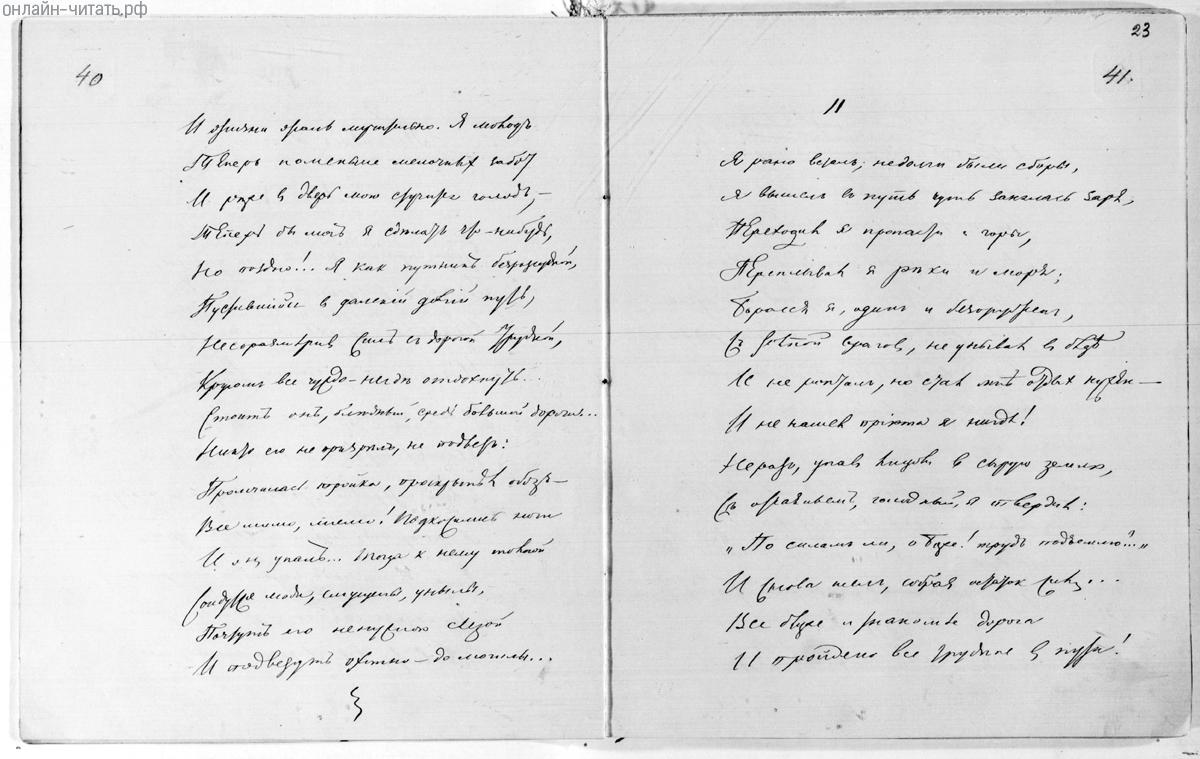 онлайн-читать.рф
40
И жизни драмъ мучительно. Я молодъ
Теперь поменьше мелочныхъ заботъ
И реже в дверь мою стучится голодъ,—
Теперь бы могъ я сделать что-нибудь,
Но поздно!.. Я как путникъ безразсудный,
Пустившийся в далекий долгий путь,
Не соразмеривъ силъ съ дорогой трудной,
Кругомъ все чуждо—негде отдохнуть...
Стоитъ онъ, бледный, средь большой дороги..
Никто его не призрилъ, не подвезъ:
Промчалась тройка, проскрыпелъ обозъ—
Все мимо, мимо! Подкосились ноги
И онъ упалъ... Тогда к нему толпой
Сойдутся люди, смущены, унылы,
Почтутъ его ненужною слезой
И подвезутъ охотно—до могилы...
23
41.
11
Я рано всталъ, недолги были сборы,
Я вышелъ въ путь чуть занялась заря,
Переходилъ я пропасти и горы,
Переплывалъ я реки и моря;
Боролся я, один и безоруженъ,
Съ толпой враговъ, не унывалъ в беде
И не ропталъ, но сталъ мне отдых нуженъ—
И не нашелъ приюта я нигде!
Не разъ, упавъ лицомъ в сырую землю,
Съ отчаяньемъ, голодный, я твердилъ:
„По силамъ ли, о Боже! трудъ подъемлю?..„
И снова шелъ, собрав остаток силъ...
Все ближе и знакомее дорога
И пройдено все трудное в пути!